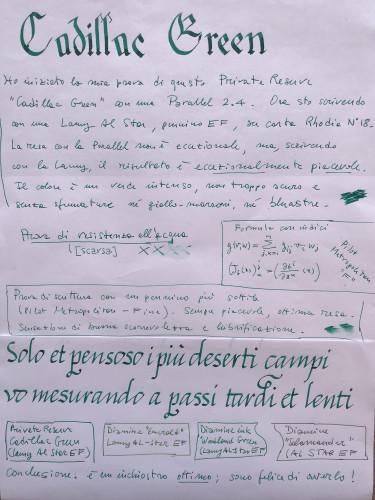 Cadillac Green
Ho iniziato la mia prova di questo Private Reserve
"Cadillac Green" con una Parallel 2.4. Ora sto scrivendo
con una Lamy Al Star, pennino EF, su carta Rhodia N°18.
La resa con la Parallel non è eccezionale, ma, scrivendo
con la Lamy, il risultato è eccezionalmente piacevole.
Il colore è un verde intenso, non troppo scuro e
senza sfumature né giallo-marroni, né bluastre.
Prova di resistenza all'acqua
[scarsa] XXXX
Formula con indici
g(v,w) = 
Pilot
Metropolitan
"F"
Prova di scrittura con un pennino più sottile
(Pilot Metropolitan - Fine). Sempre piacevole, ottima resa.
Sensazioni di buona scorrevolezza e lubrificazione.
Solo et pensoso i più deserti campi
vo mesurando a passi tardi et lenti
Private Reserve
Cadillac Green
(Lamy Al Star EF)
Diamine "Emerald"
Lamy AL-Star EF
Diamine Ink
"Woodland Green"
(Lamy AL Star EF)
Diamine
"Salamander"
(AL STAR EF
Conclusione: è un inchiostro ottimo; sono felice di averlo!